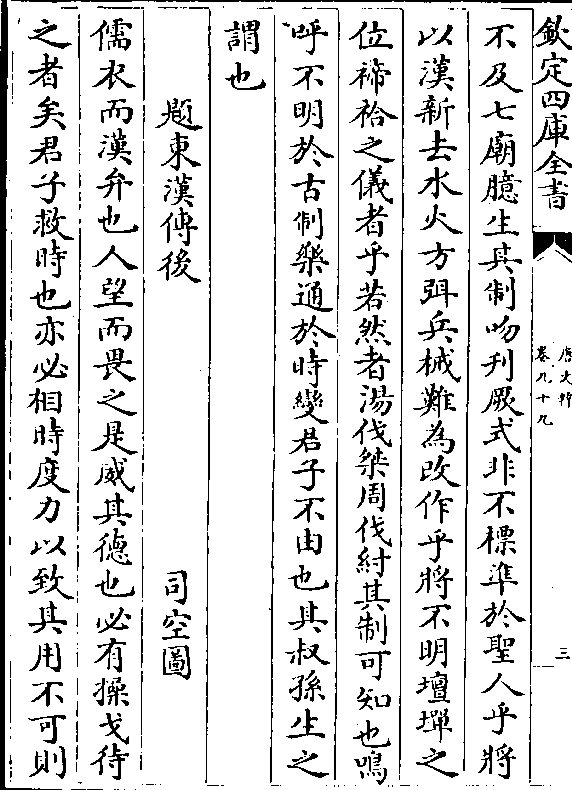 欽定四庫全書
唐文粹
卷九十九
三
不及七廟臆生其制吻刋厥式非不標準於聖人乎將
以漢新去水火方弭兵械難為改作乎將不明壇墠之
位禘祫之儀者乎若然者湯伐桀周伐紂其制可知也鳴
呼不明於古制樂通於時變君子不由也其叔孫生之
謂也
題東漢傳後
司空圖
儒衣而漢弁也人望而畏之是威其德也必有操戈待
之者矣君子救時也亦必相時度力以致其用不可則